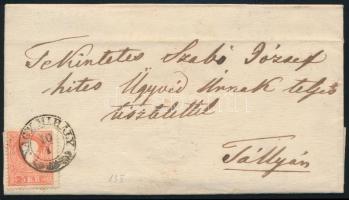 Tekintetes Szabó József
hites Ügyvéd Úrnak teljes
tisztelettel
Tállyán
NAGY MIHÁLY